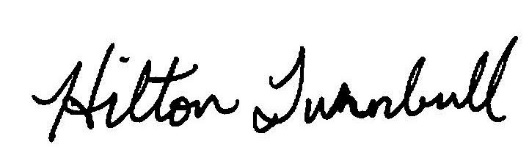 Hilton Turnbull